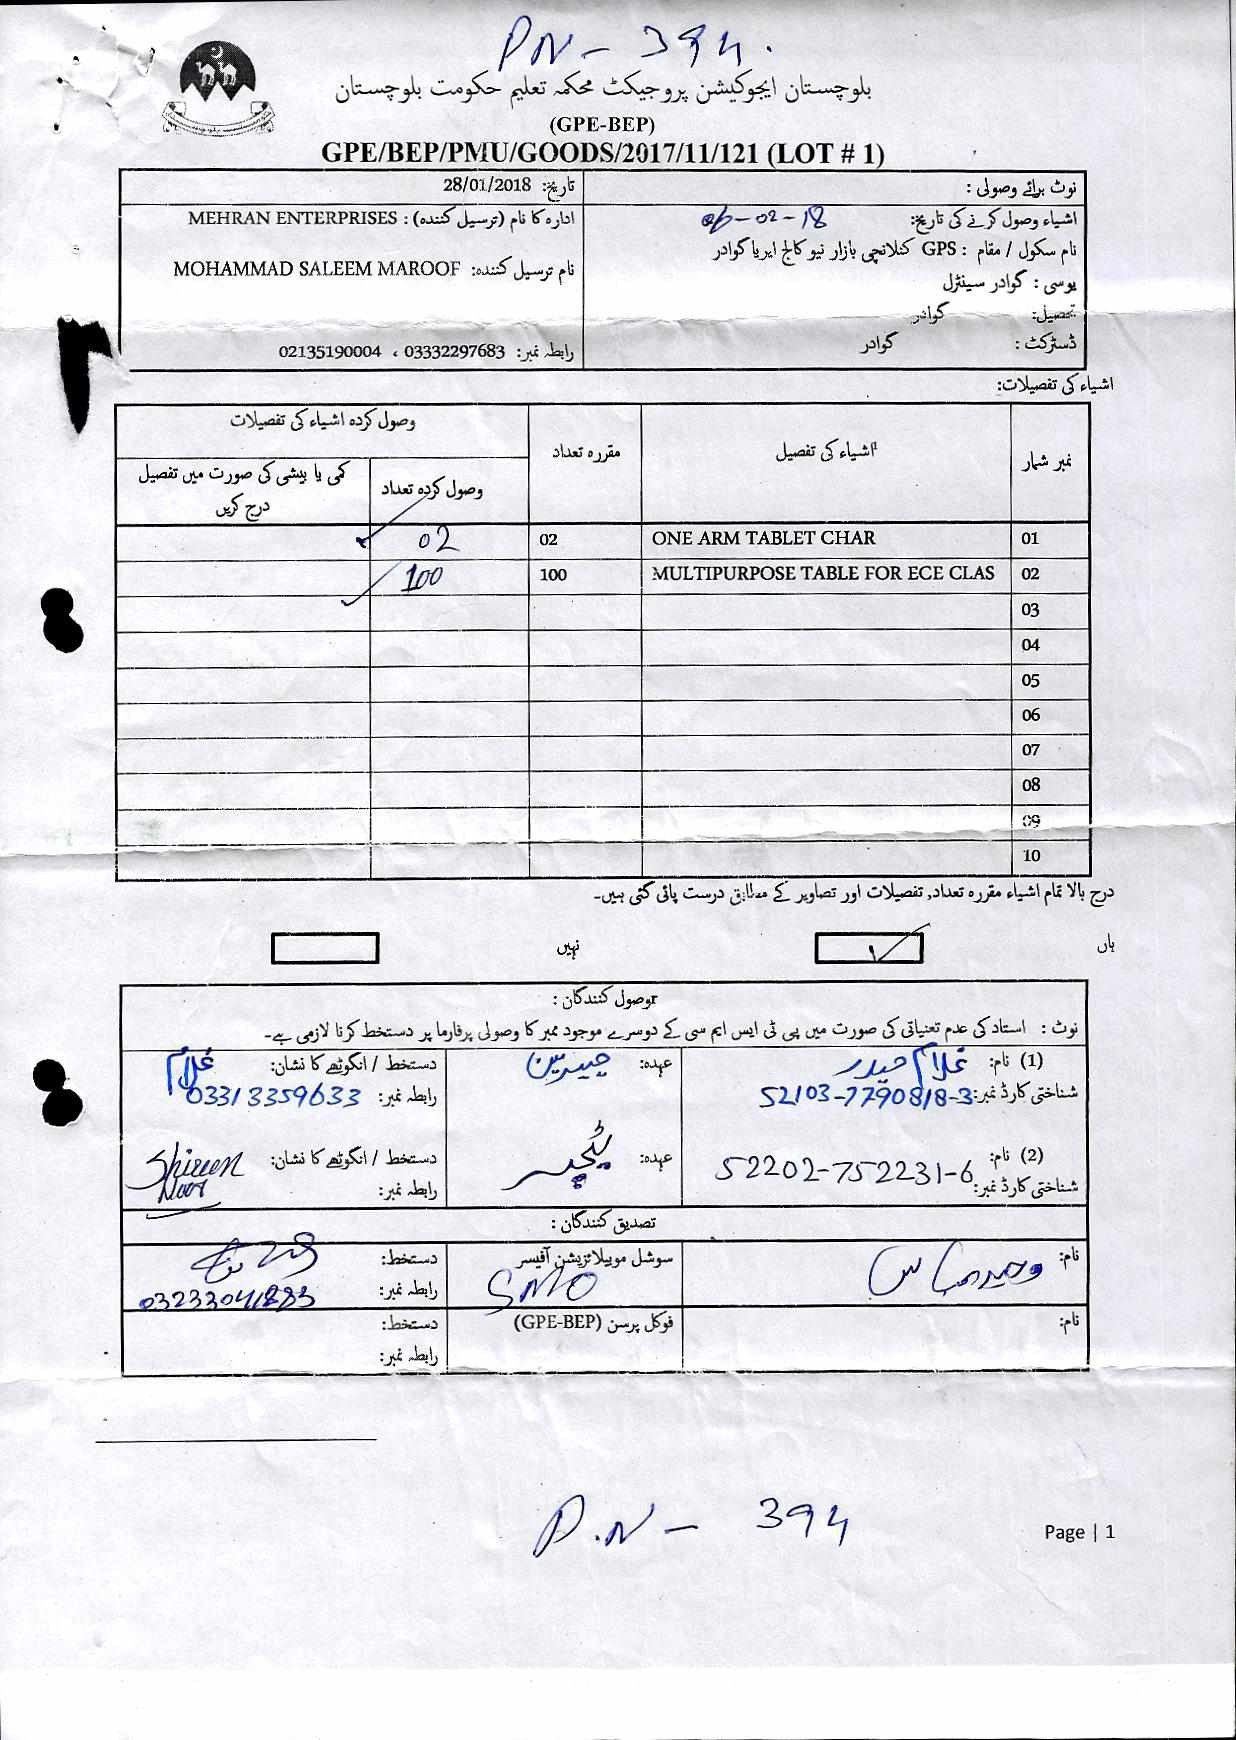 P.N - 394.
بلوچستان ایجوکیشن پروجیکٹ محکمہ تعلیم حکومت بلوچستان
(GPE-BEP)
GPE/BEP/PMU/GOODS/2017/11/121 (LOT # 1)
نوٹ برائے وصولی :
تاریخ: 28/01/2018
اشیاء وصول کرنے کی تاریخ: 06-02-18
ادارہ کا نام (ترسیل کنندہ) : MEHRAN ENTERPRISES
نام سکول / مقام : GPS کنلانچی بازار نیو کالج ایریا گوادر
نام ترسیل کنندہ: MOHAMMAD SALEEM MAROOF
یوسی : گوادر سینٹرل
تحصیل: گوادر
ڈسٹرکٹ : گوادر
رابطہ نمبر: 03332297683 ، 02135190004
اشیاء کی تفصیلات:
نمبر شمار اشیاء کی تفصیل مقررہ تعداد وصول کردہ اشیاء کی تفصیلات
وصول کردہ تعداد کمی یا بیشی کی صورت میں تفصیل درج کریں
01 ONE ARM TABLET CHAR 02 02
02 MULTIPURPOSE TABLE FOR ECE CLAS 100 100
03
04
05
06
07
08
09
10
درج بالا تمام اشیاء مقررہ تعداد, تفصیلات اور تصاویر کے مطابق درست پائی گئی ہیں۔
ہاں نہیں
وصول کنندگان :
نوٹ : استاد کی عدم تعنیاتی کی صورت میں پی ٹی ایس ایم سی کے دوسرے موجود ممبر کا وصولی پرفارما پر دستخط کرنا لازمی ہے۔
(1) نام: غلام حیدر عہدہ: چیئرمین دستخط / انگوٹھے کا نشان: غلام
شناختی کارڈ نمبر: 52103-7790818-3 رابطہ نمبر: 03313359633
(2) نام: عہدہ: ٹیچر دستخط / انگوٹھے کا نشان: Shireen Noor
شناختی کارڈ نمبر: 52202-752231-6 رابطہ نمبر:
تصدیق کنندگان :
نام: سوشل موبیلائزیشن آفیسر دستخط:
SMO رابطہ نمبر: 03233041883
نام: فوکل پرسن (GPE-BEP) دستخط:
رابطہ نمبر:
P.N - 394
Page | 1